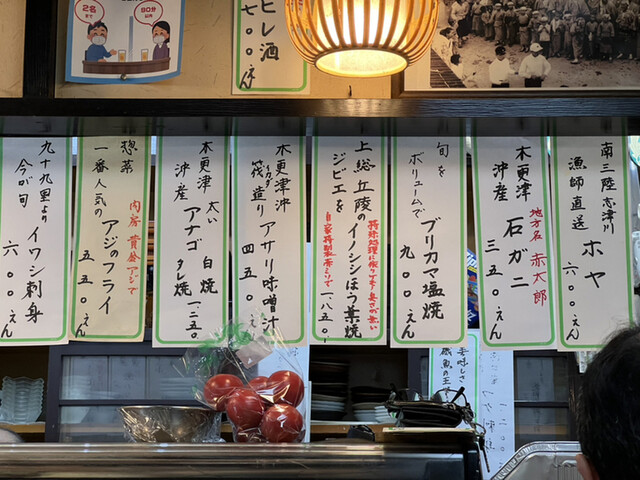 2名
まで
90分
以内
ヒレ酒
七〇〇えん
南三陸志津川
漁師直送
ホヤ
六〇〇えん
木更津
沖産
地方名 赤太郎
石ガニ
三五〇えん
旬を
ボリュームで
ブリカマ塩焼
九〇〇えん
上総丘陵の
ジビエを
イノシシほう葉焼
一八五〇
木更津沖
筏造り
アサリ味噌汁
四五〇えん
木更津
沖産
太い
アナゴ
白焼
タレ焼
一二五〇
惣菜
一番人気の
内房 黄金アジで
アジのフライ
五五〇えん
九十九里より
今が旬
イワシ刺身
六〇〇えん